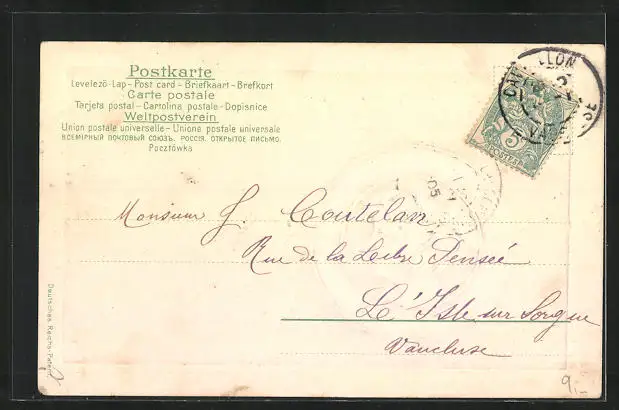 Postkarte
Levelező-Lap - Post card - Briefkaart - Brefkort
Carte postale
Tarjeta postal - Cartolina postale - Dopisnice
Weltpostverein
Union postale universelle - Unione postale universale
ВСЕМІРНЫЙ ПОЧТОВЫЙ СОЮЗЪ. РОССІЯ. ОТКРЫТОЕ ПИСЬМО.
Pocztówka
5
POSTES
05
Monsieur J. Coutelan
Rue de la Libre Pensée
L'Isle sur Sorgue
Vaucluse
Deutsches Reichs-Patent
9,-